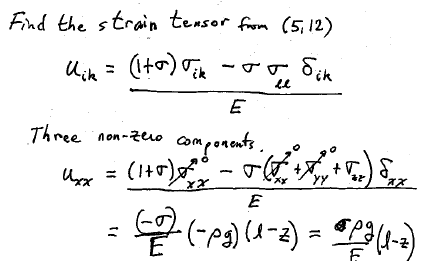 Find the strain tensor from (5,12)
u_ik = ((1+σ)σ_ik − σ σ_ll δ_ik) / E
Three non-zero components.
u_xx = ((1+σ)σ_xx→0 − σ(σ_xx→0 + σ_yy→0 + σ_zz) δ_xx) / E
= (−σ)/E (−ρg)(l−z) = σρg/E (l−z)